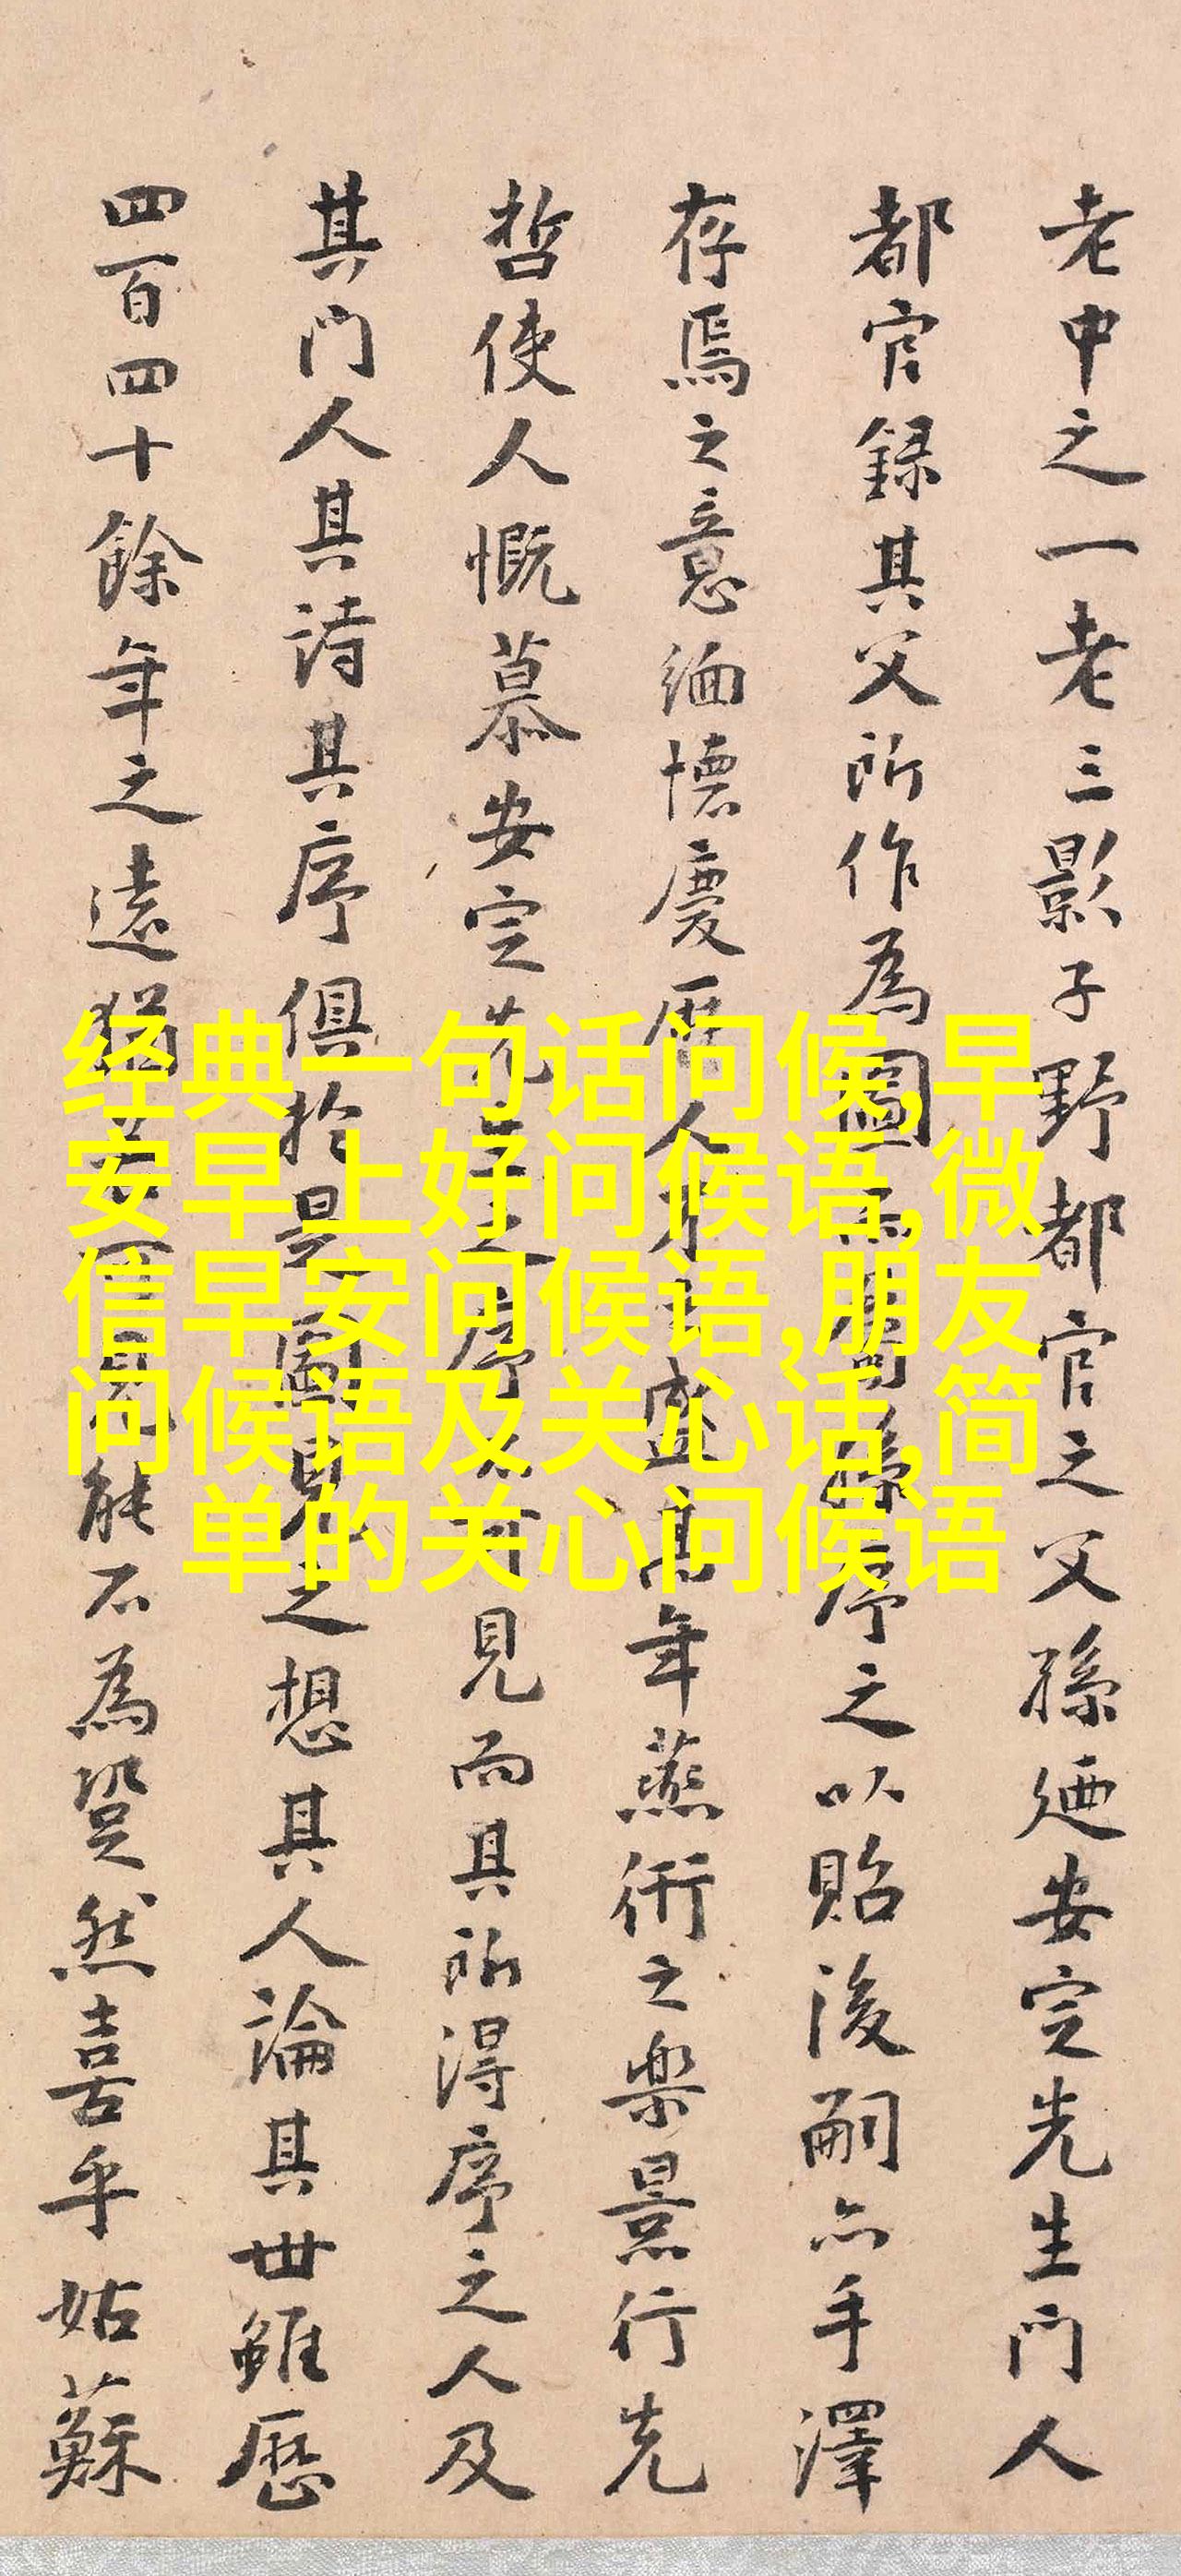 老中之一老三影子野都官之父孫廼安定先生門人
都官録其父所作為圖 孫序之以貽後嗣亦手澤
存焉之意緬懷慶曆人才之盛高年燕衎之樂景行先
哲使人慨慕安定先生之序不可見而具所得序之人及
其門人其詩其序俱於是圖見之想其人論其世雖歷
四百四十餘年之遠猶 能不為跫然喜乎姑蘇
经典一句话问候,早
安早上好问候语,微
信早安问候语,朋友
问候语及关心话,简
单的关心问候语